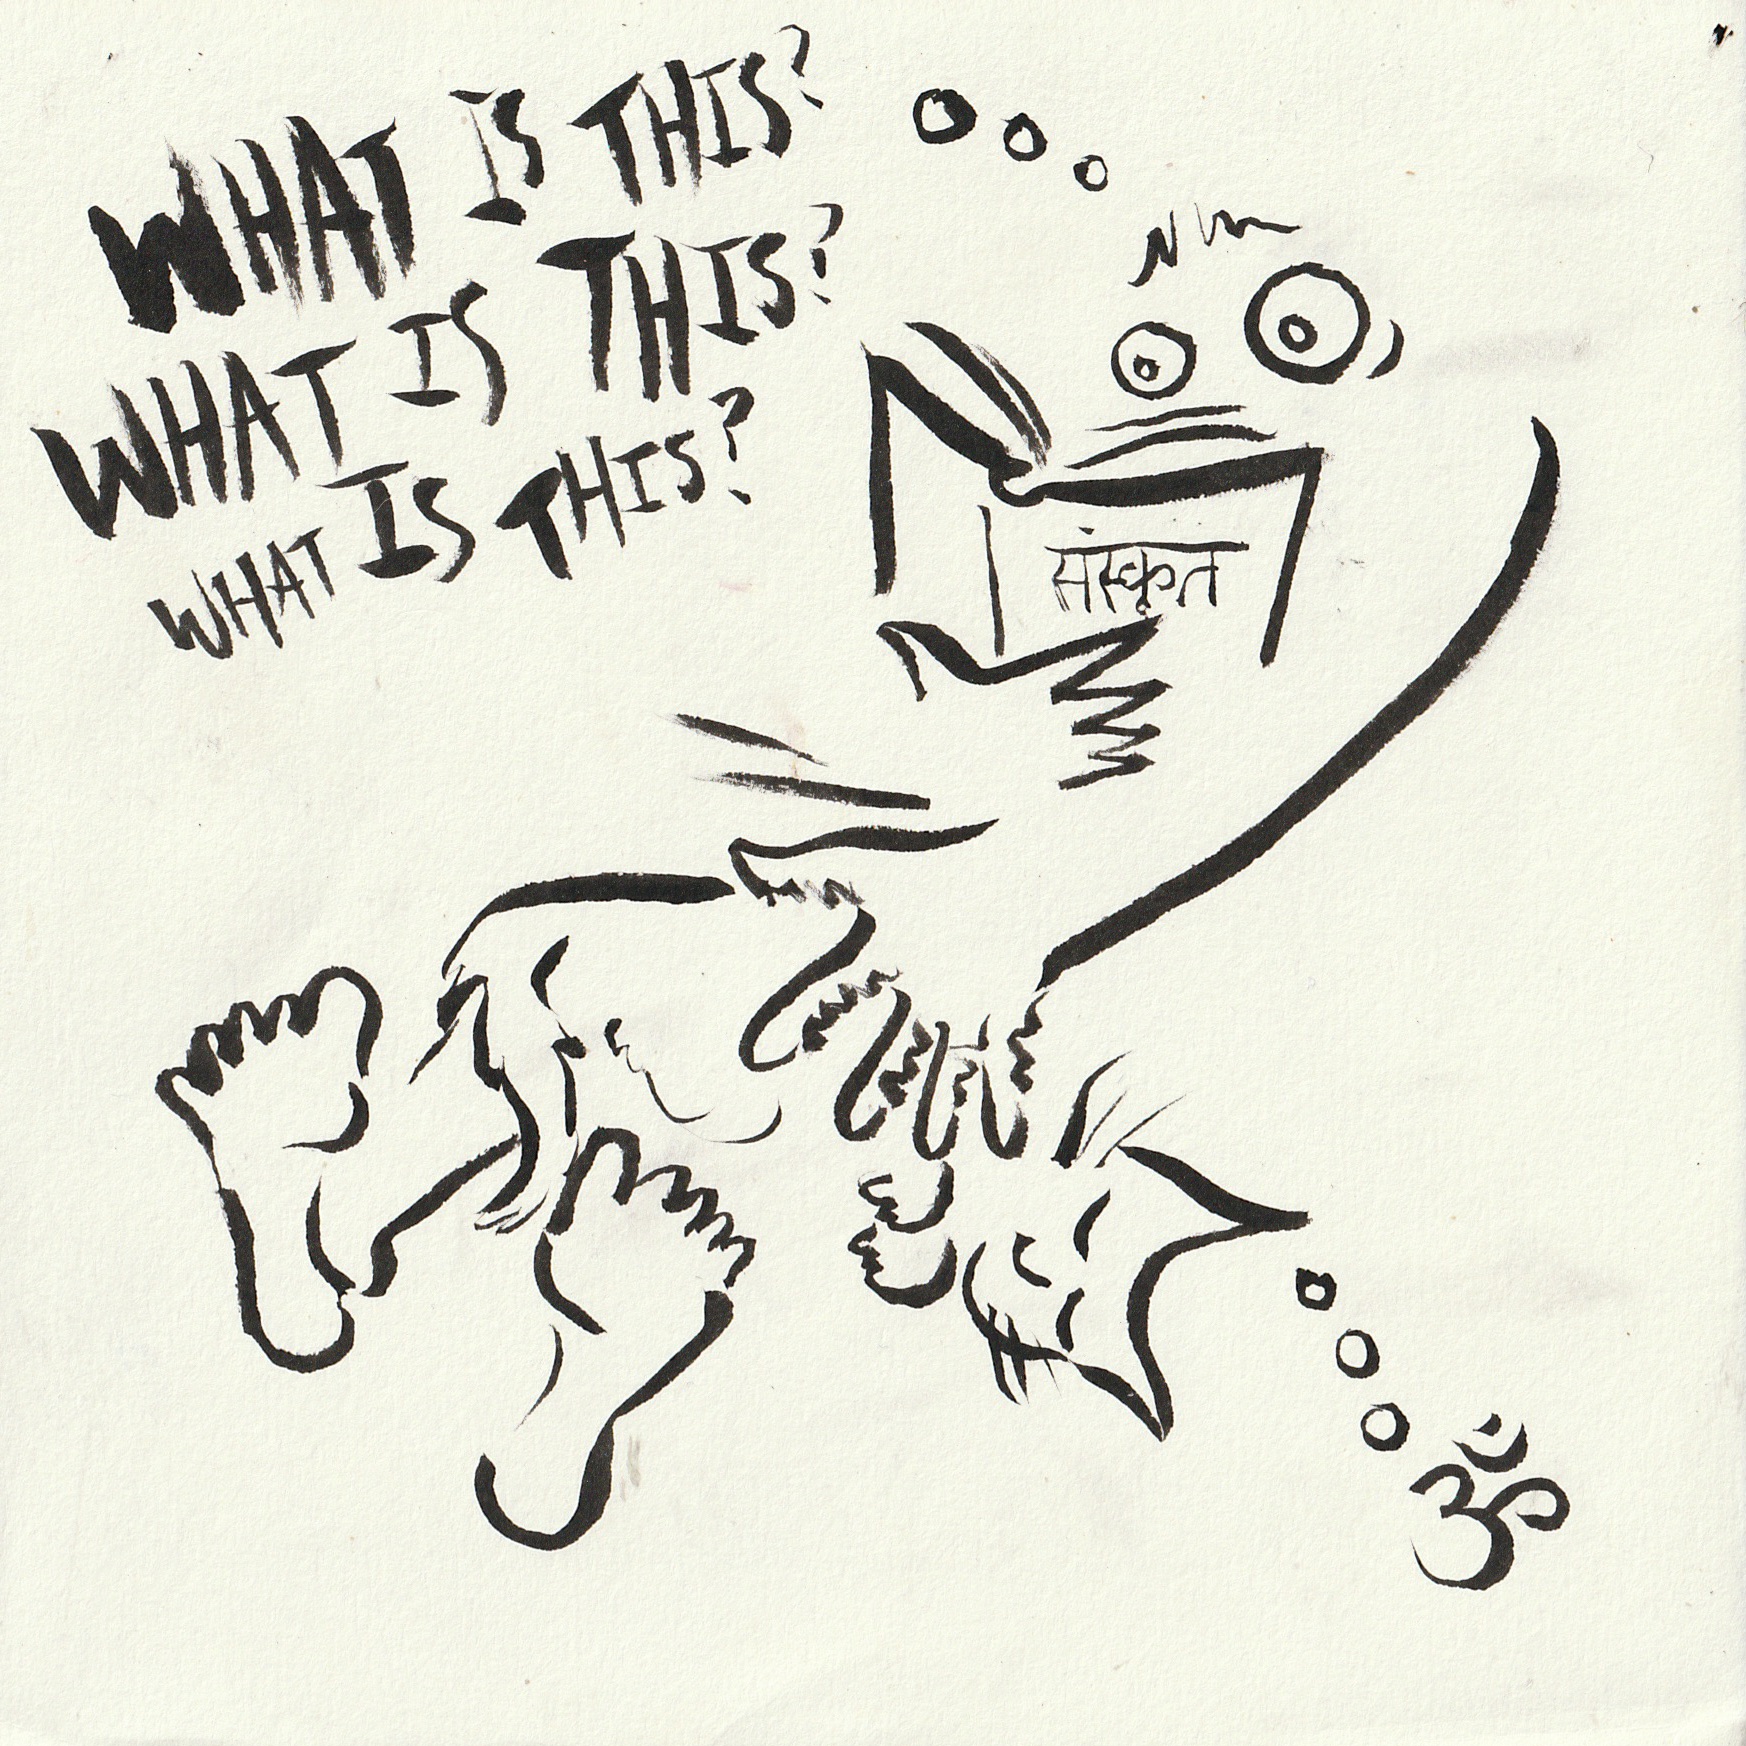 WHAT IS THIS?
WHAT IS THIS?
WHAT IS THIS?
संस्कृत
ॐ